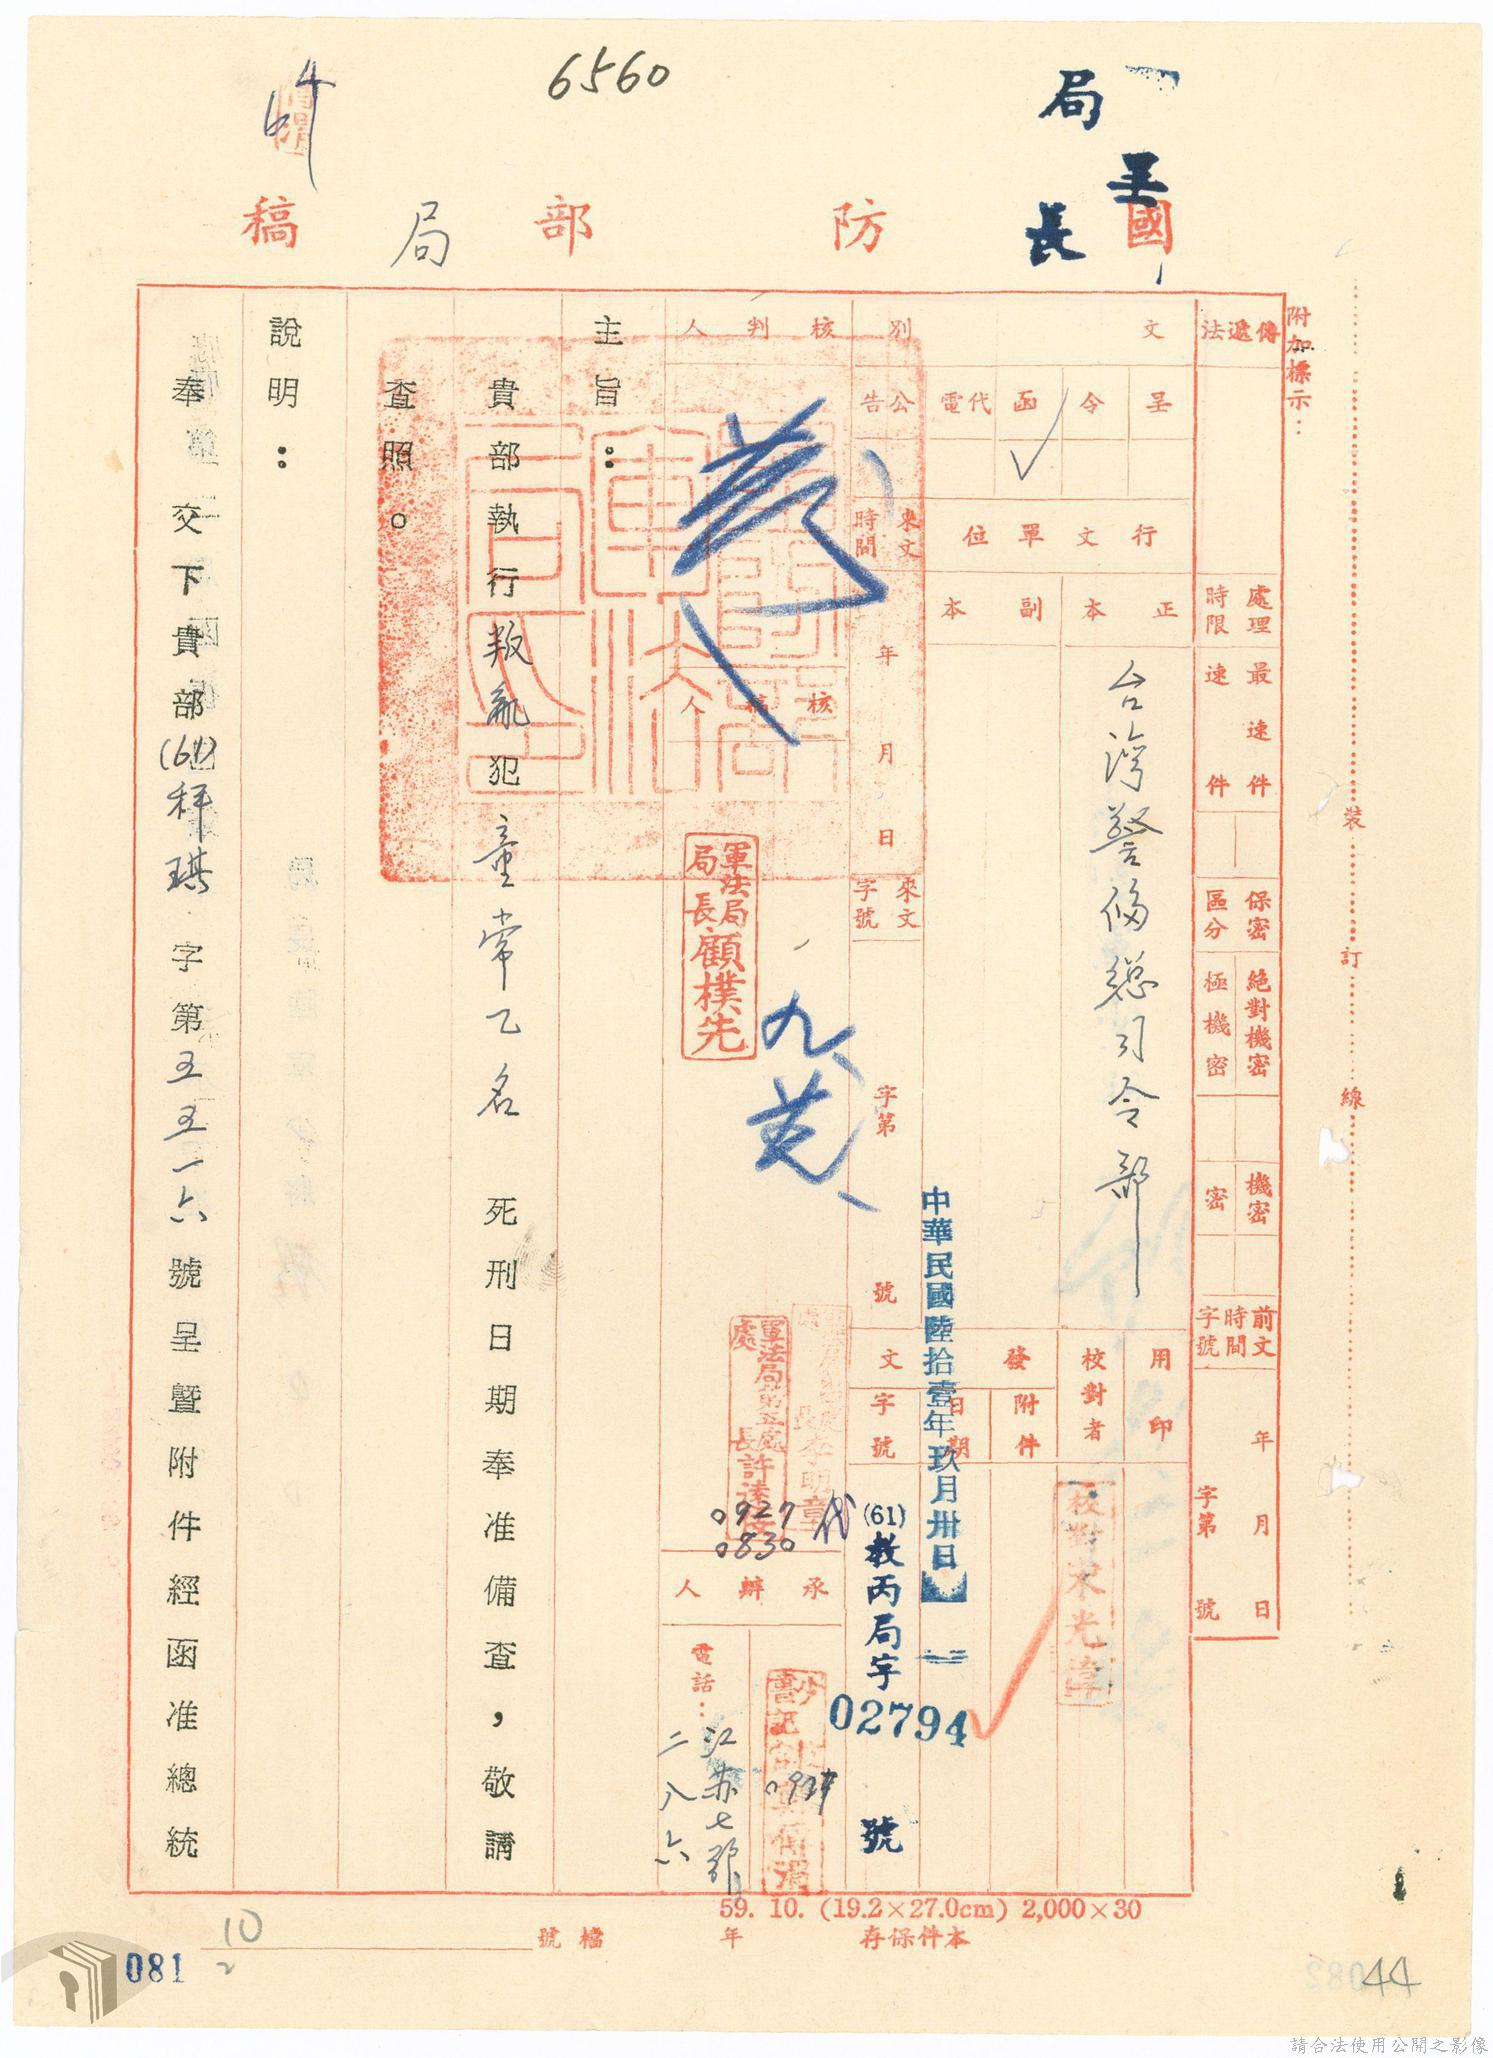 6560
局長
呈
國防部局稿
附加標示：
傳遞法
處理時限
最速件
速件
保密區分
絕對機密
極機密
機密
密
前文時間字號
年月日
字第號
文別
呈
令
函
代電
公告
行文單位
正本
副本
台灣警備總司令部
來文時間
年月日
來文字號
字第
號
用印
校對者
發文
附件
日期
字號
校對宋光
中華民國陸拾壹年玖月卅日
(61)教丙局字
02794
號
核判人
核稿人
軍法局局長顧樸先
九
軍法局第五處處長許
李明章
代
0927
0830
承辦人
電話：
江苏七號
二八六
書記
主旨：
貴部執行叛亂犯童常乙名 死刑日期奉准備查，敬請
查照。
說明：
奉交下貴部(61)秤琪字第五五一六號呈暨附件經函准總統
59. 10. (19.2×27.0cm) 2,000×30
本件保存
年
檔號
10
2
081
44
裝
訂
線
請合法使用公開之影像